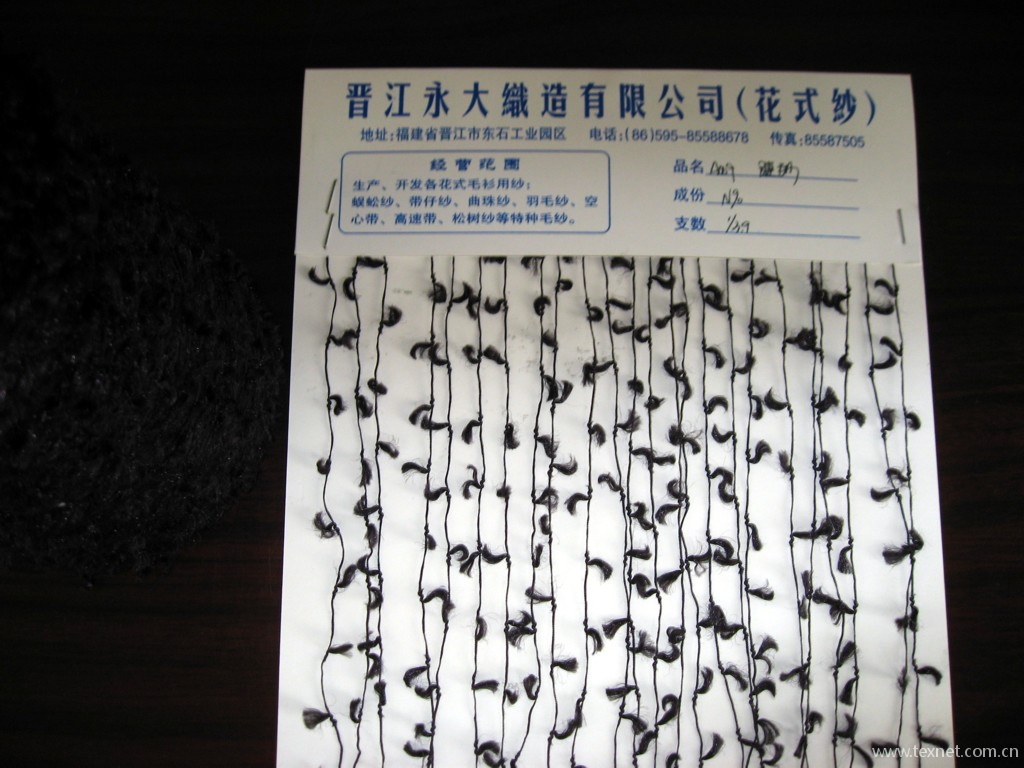 晋江永大織造有限公司(花式纱)
地址:福建省晋江市东石工业园区 电话:(86)595-85588678 传真:85587505
经营范围
生产、开发各花式毛衫用纱:
蜈蚣纱、带仔纱、曲珠纱、羽毛纱、空
心带、高速带、松树纱等特种毛纱。
品名
成份 N%
支数 1/3.9
www.texnet.com.cn